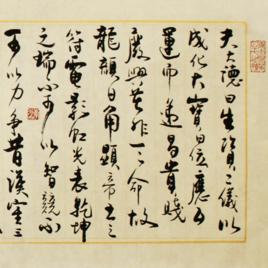 夫大德曰生資二儀以
成化大寶曰位應五
運而遞昌貴賤
廢興莫非一一命故
龍顏日角顯帝王之
符電影虹光表乾坤
之瑞不可以智競不
可以力爭昔漢室三